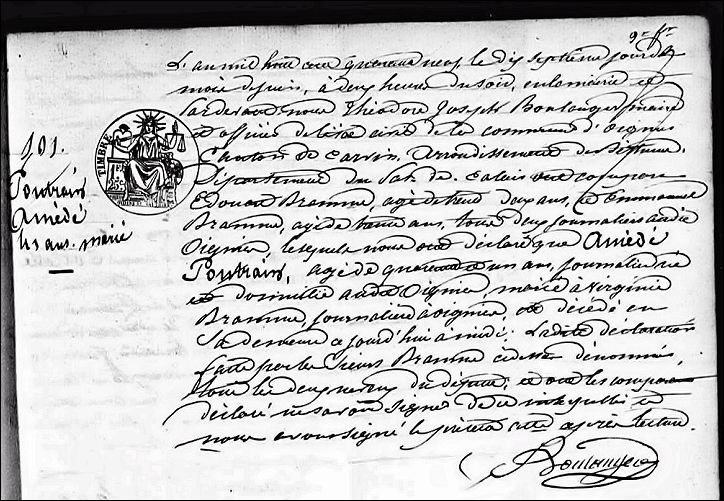 9e ft
L'an mil huit cent quarante neuf, le dix septième jour du
mois de juin, à deux heures du soir, en la mairie et
par devant nous Théodore Joseph Boulanger, maire
et officier de l'état civil de la commune d'Oignies
Canton de Carvin, Arrondissement de Béthune,
Département du Pas de Calais ont comparu
Edouard Bramme, agé de trente deux ans, et Emmanuel
Bramme, agé de trente ans, tous deux journaliers audit
Oignies, lesquels nous ont déclaré que Amédé
Pontrain, agé de quarante un ans, journalier né
et domicilié audit Oignies, marié à Virginie
Bramme, journalière à Oignies, est décédé en
sa demeure aujourd'hui à midi. Ladite déclaration
faite par les sieurs Bramme ci dessus dénommés,
tous les deux du défunt, et ont les comparans
déclaré ne savoir signer de ce interpellés et
nous avons signé le présent acte après lecture.
Boulanger
101.
Pontrain
Amédé
41 ans. marié
TIMBRE